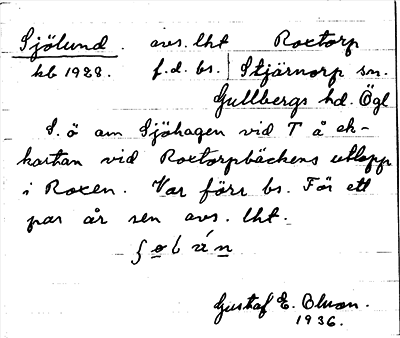 Sjölund. avs. lht Roxtorp
kb 1928. f.d. bs. Stjärnorp sn.
Gullbergs hd. Ögl
S.ö am Sjöhagen vid T å ek-
kartan vid Roxtorpbäckens utlopp
i Roxen. Var förr bs. För ett
par år sen avs. lht.
Gustaf E. Bluom.
1936.